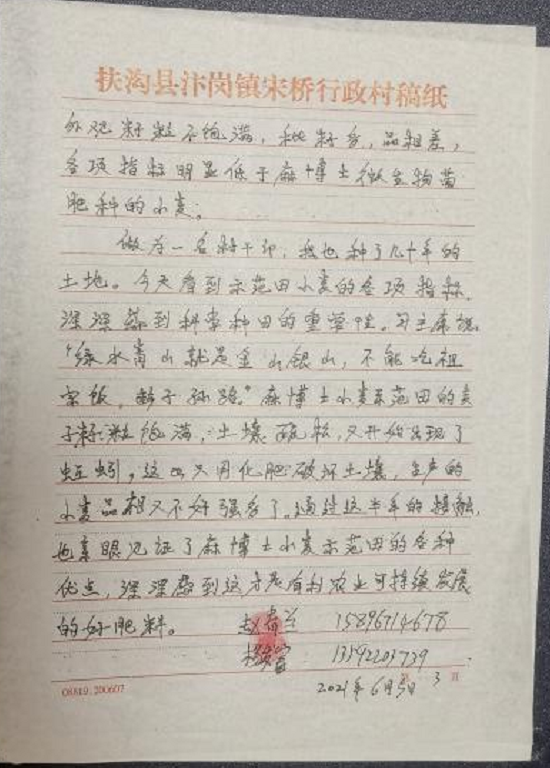 扶沟县汴岗镇宋桥行政村稿纸
外观籽粒不饱满，秕籽多，品相差，
各项指标明显低于麻博士微生物菌
肥种的小麦。
做为一名村干部，我也种了几十年的
土地。今天看到示范田小麦的各项指标，
深深感到科学种田的重要性。习主席说
"绿水青山就是金山银山，不能吃祖
宗饭，断子孙路。"麻博士小麦示范田的麦
子籽粒饱满，土壤疏松，又开始出现了
蚯蚓，这比只用化肥破坏土壤，生产的
小麦品相又不好强多了。通过这半年的接触，
也亲眼见证了麻博士小麦示范田的各种
优点，深深感到这才是有利农业可持续发展
的好肥料。 赵 15896714678
13592203739
2021年6月5日 3 页
08819.200607